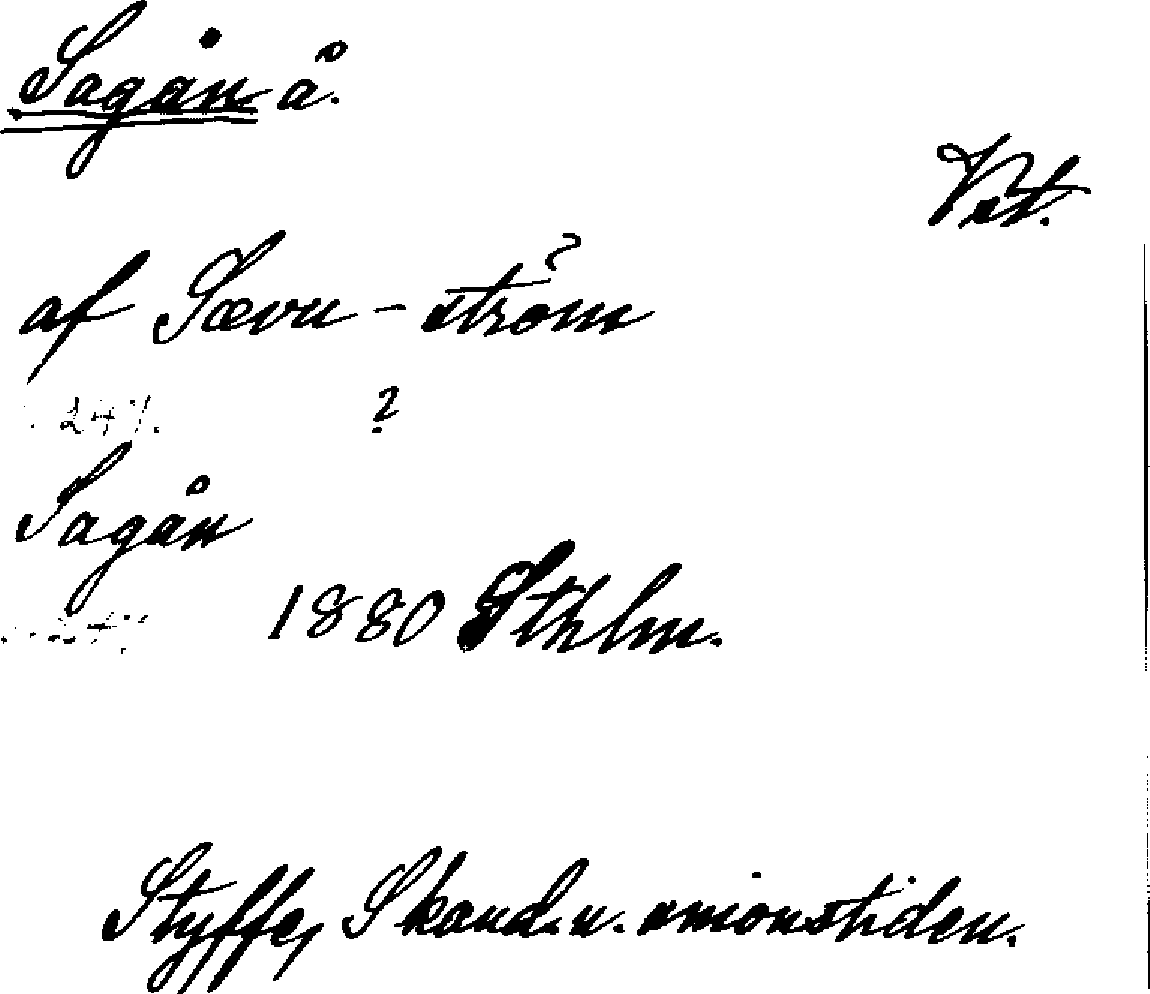 Sagån å.
Vst.
af Sævu - ström
?
s. 247.
?
Sagån
s. 247.
1880 Sthlm.
Styffe, Skand. u. unionstiden.